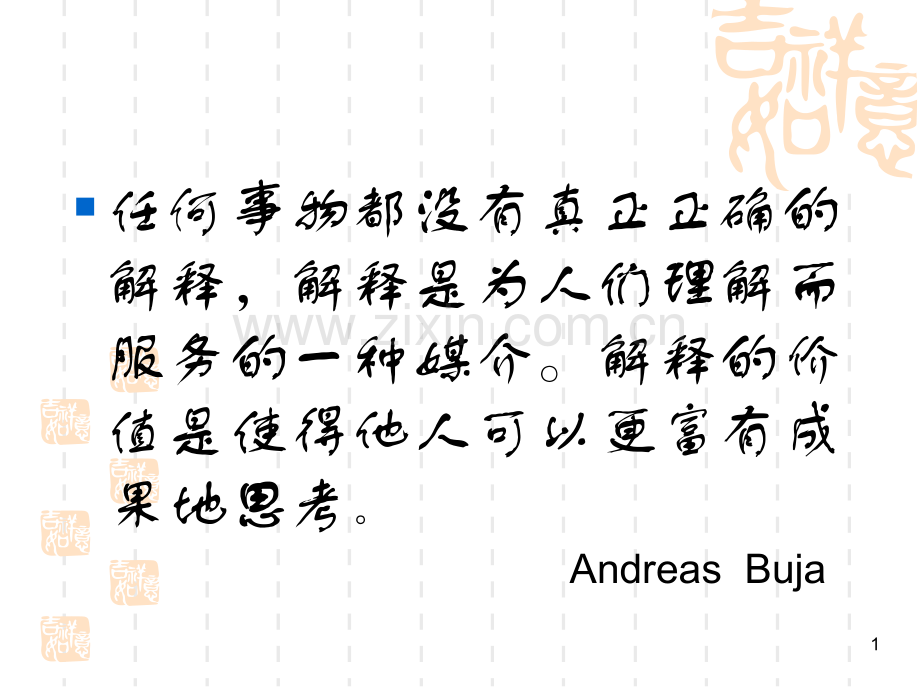 吉祥如意
任何事物都没有真正正确的
解释，解释是为人们理解而
服务的一种媒介。解释的价
值是使得他人可以更富有成
果地思考。
Andreas Buja
www.zixin.com.cn
吉祥如意
吉祥如意
吉祥如意
吉祥如意
吉祥如意
吉祥如意
1